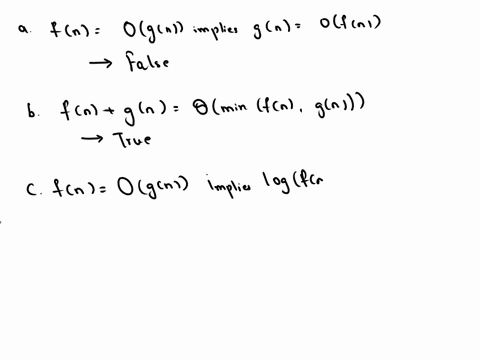 a. f(n) = O(g(n)) implies g(n) = O(f(n))
→ False
b. f(n) + g(n) = Θ(min (f(n), g(n)))
→ True
C. f(n) = O(g(n)) implies log(f(n